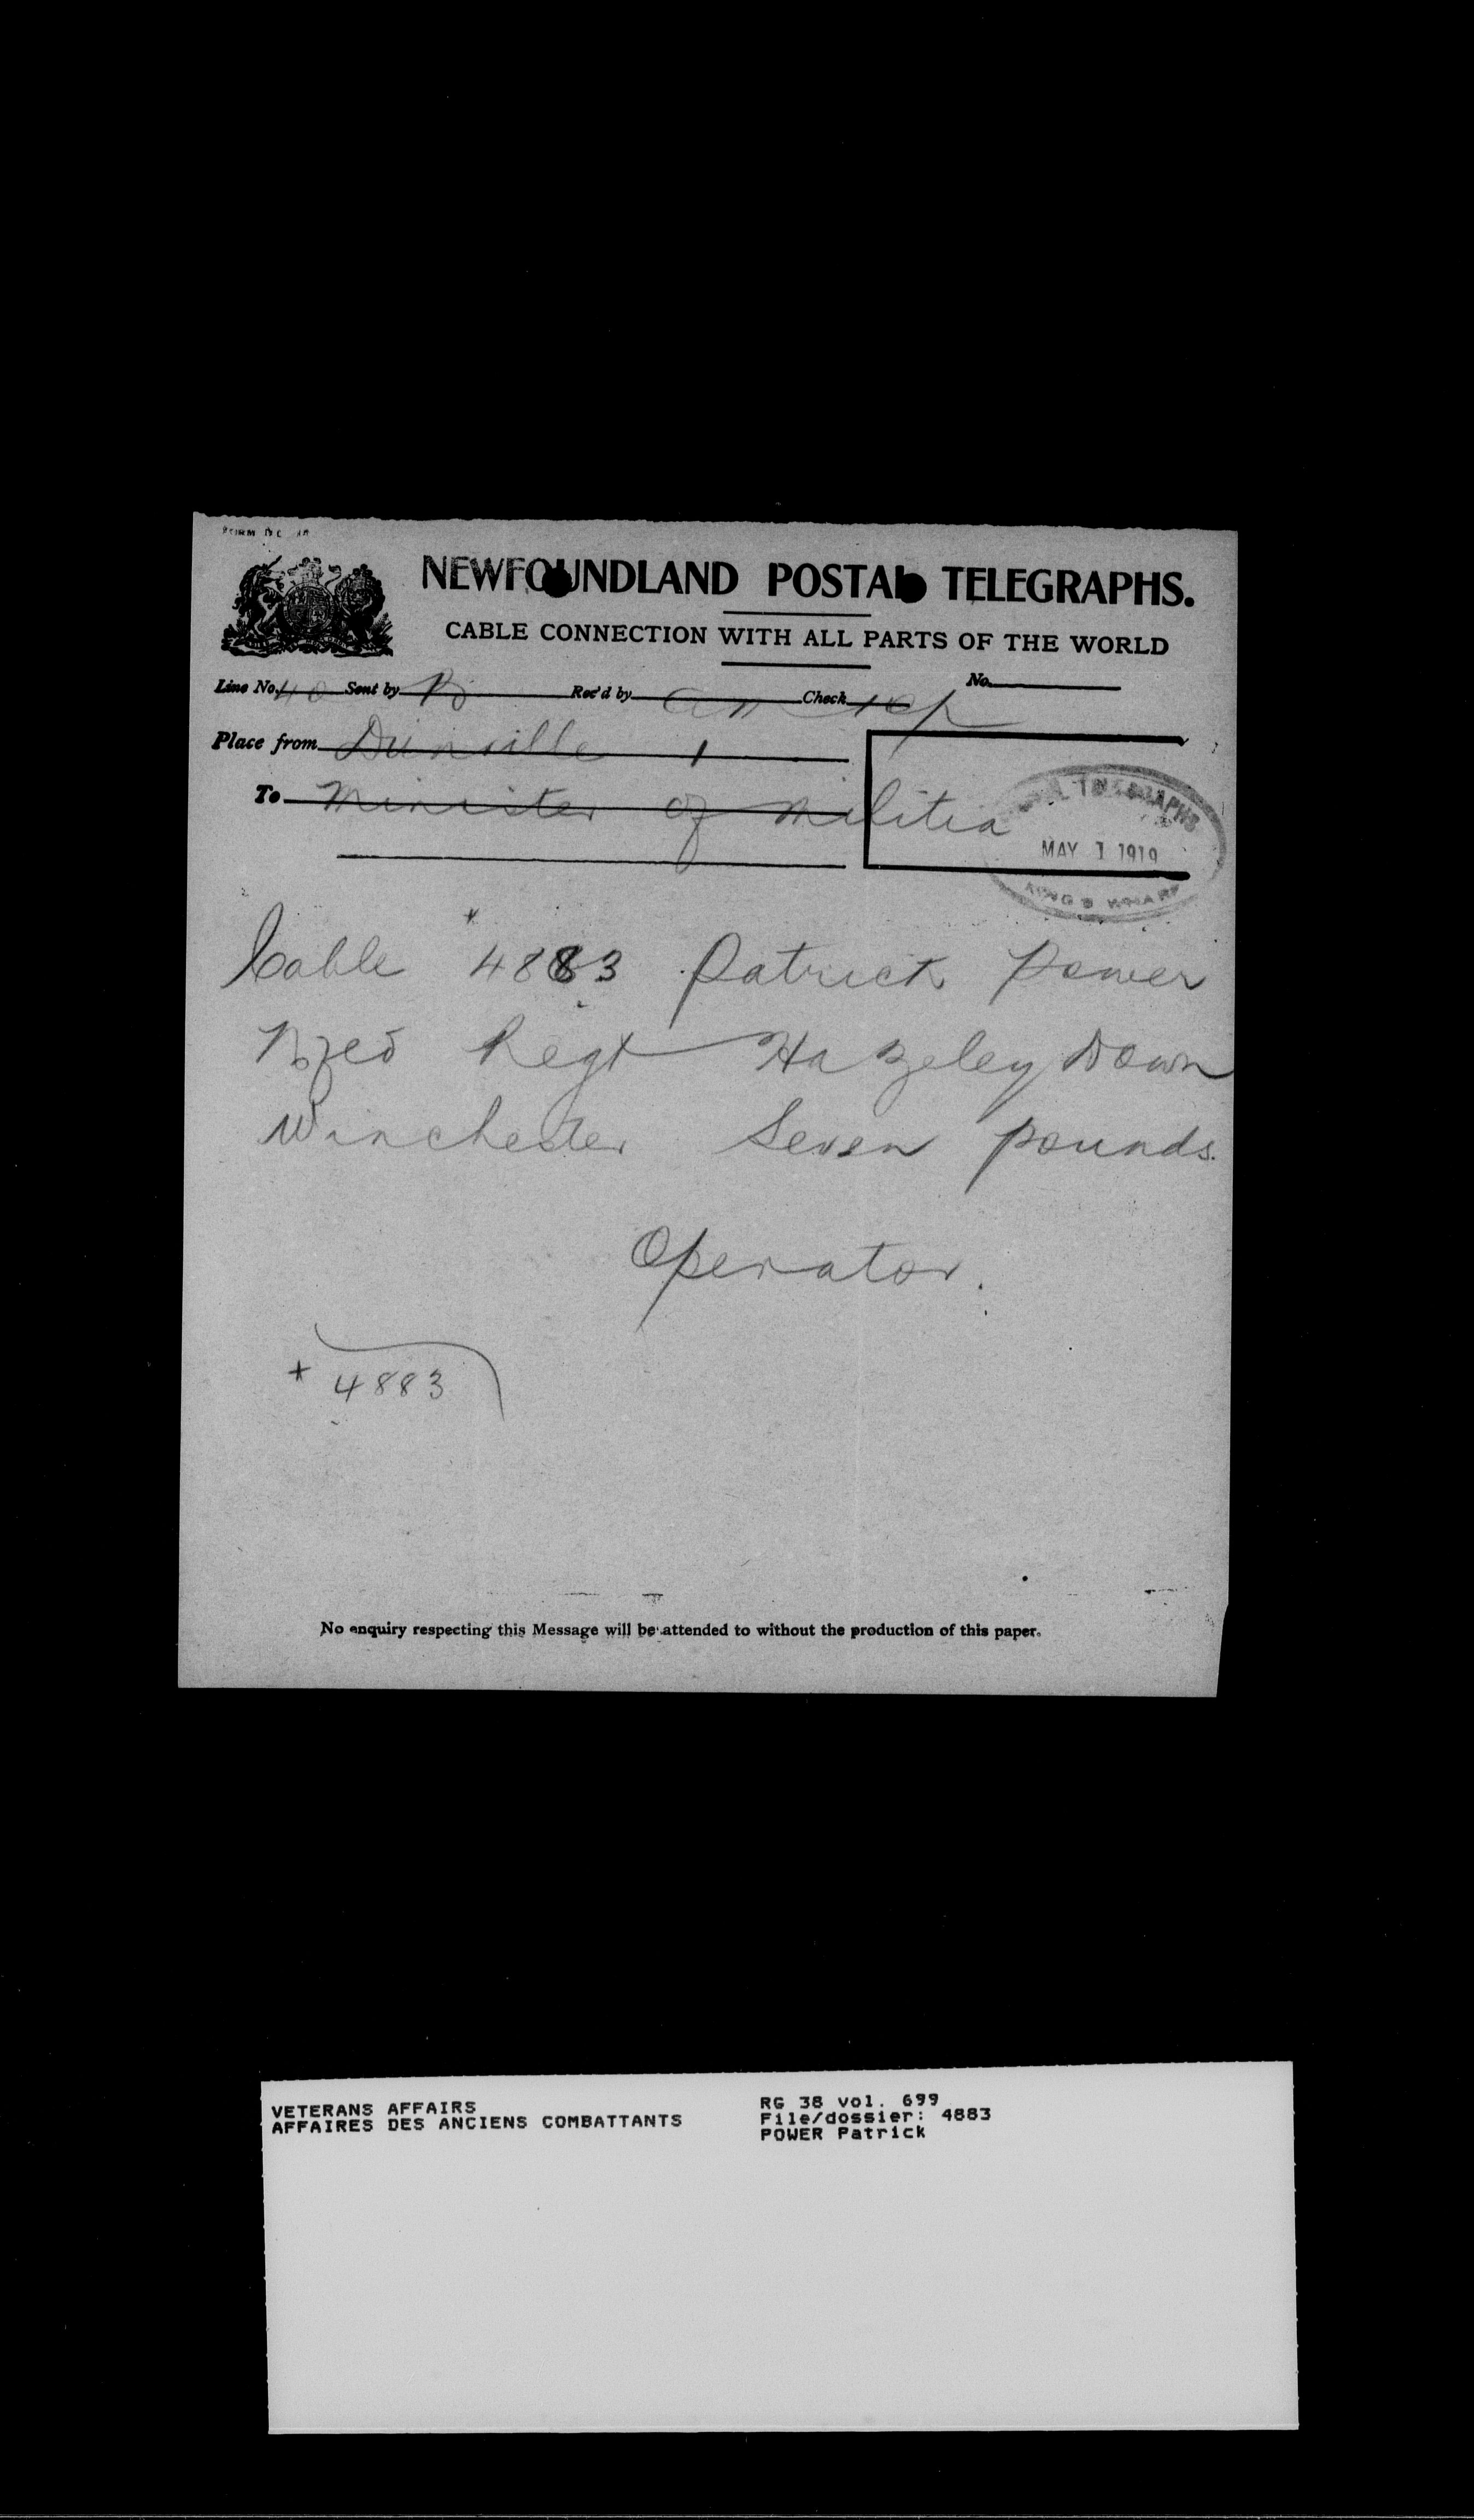 NEWFOUNDLAND POSTAL TELEGRAPHS.
CABLE CONNECTION WITH ALL PARTS OF THE WORLD
Line No. 40 Sent by Rec'd by Check No.
Place from Dunville 1
To Minister of Militia
TELEGRAPHS
MAY 1 1919
KING'S WHARF
Cable 4883 Patrick Power
Nfld Regt Hazeley Down
Winchester Seven pounds.
Operator.
+ 4883
No enquiry respecting this Message will be attended to without the production of this paper.
VETERANS AFFAIRS
AFFAIRES DES ANCIENS COMBATTANTS
RG 38 vol. 699
File/dossier: 4883
POWER Patrick